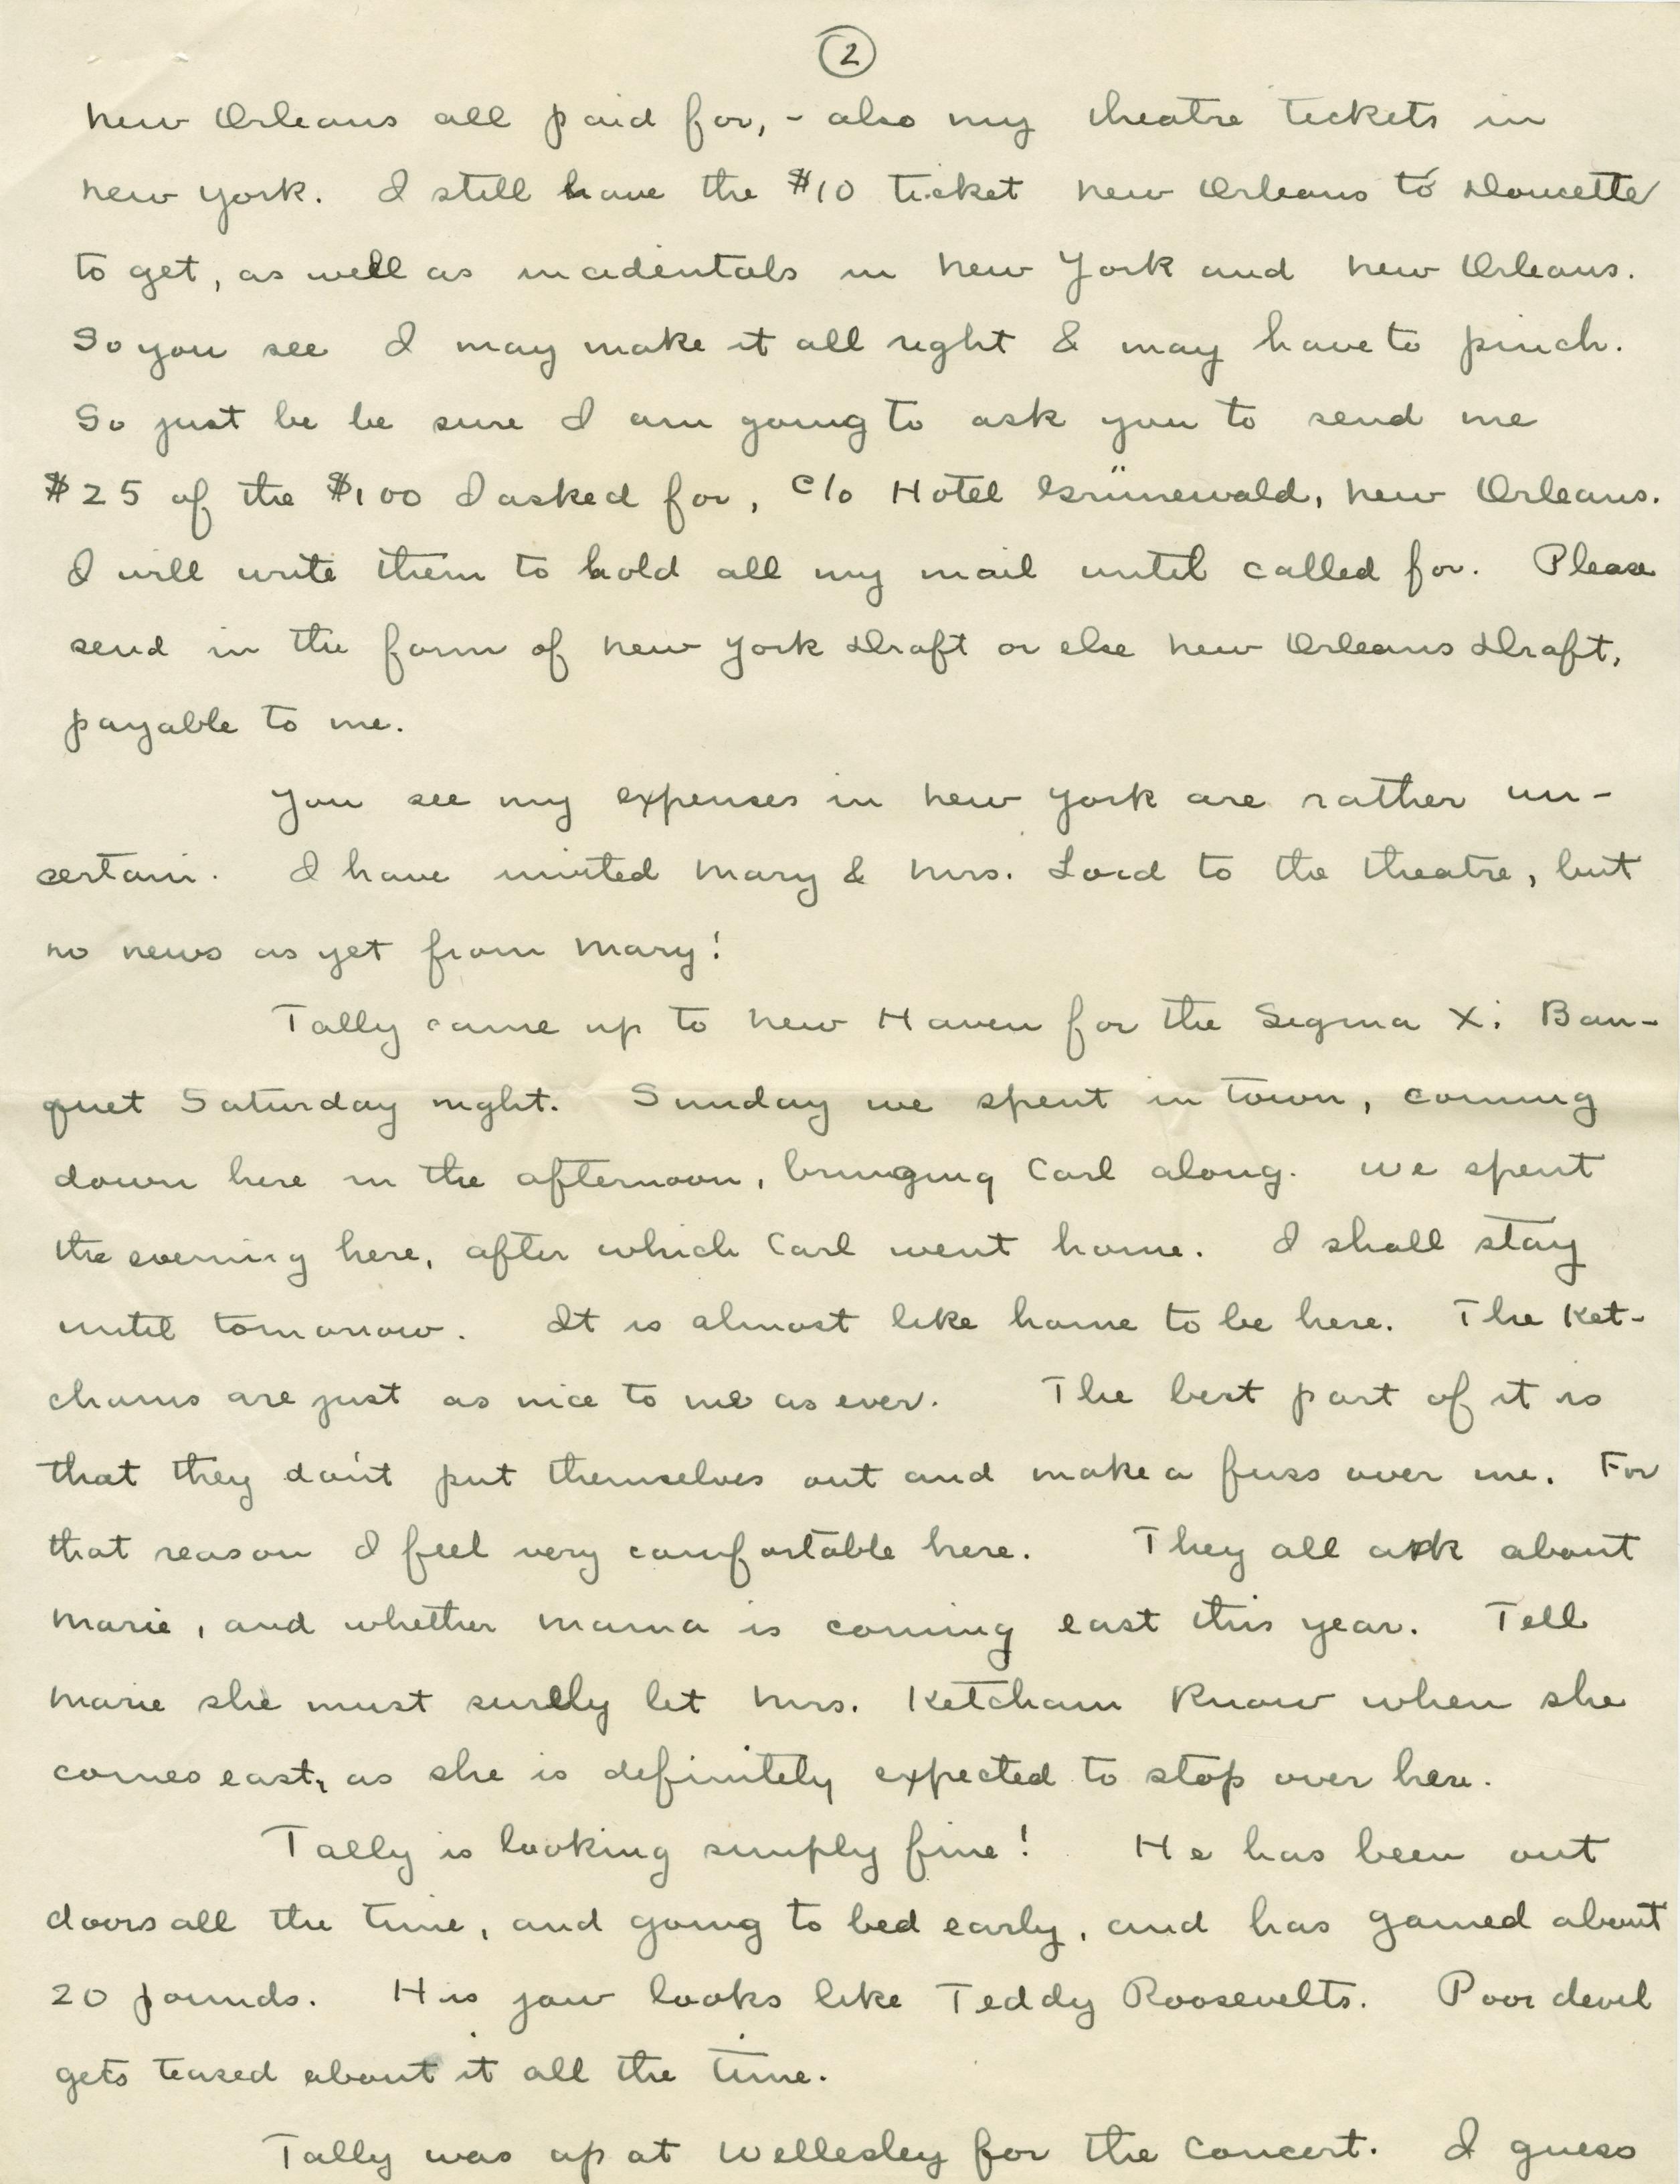 2
New Orleans all paid for, - also my theatre tickets in
New York. I still have the $10 ticket New Orleans to Doucette
to get, as well as incidentals in New York and New Orleans.
So you see I may make it all right & may have to pinch.
So just be be sure I am going to ask you to send me
$25 of the $100 I asked for, c/o Hotel Grünewald, New Orleans.
I will write them to hold all my mail until called for. Please
send in the form of New York Draft or else New Orleans Draft,
payable to me.
You see my expenses in New York are rather un-
certain. I have invited Mary & Mrs. Lord to the theatre, but
no news as yet from Mary!
Tally came up to New Haven for the Sigma Xi Ban-
quet Saturday night. Sunday we spent in town, coming
down here in the afternoon, bringing Carl along. We spent
the evening here, after which Carl went home. I shall stay
until tomorrow. It is almost like home to be here. The Ket-
chams are just as nice to me as ever. The best part of it is
that they don't put themselves out and make a fuss over me. For
that reason I feel very comfortable here. They all ask about
Marie, and whether mama is coming east this year. Tell
Marie she must surely let Mrs. Ketcham know when she
comes east, as she is definitely expected to stop over here.
Tally is looking simply fine! He has been out
doors all the time, and going to bed early, and has gained about
20 pounds. His jaw looks like Teddy Roosevelts. Poor devil
gets teased about it all the time.
Tally was up at Wellesley for the Concert. I guess